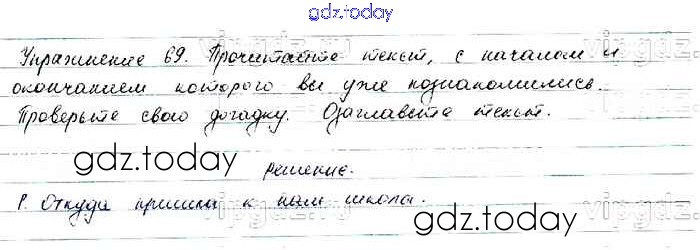 gdz.today
Упражнение 69. Прочитайте текст, с началом и
окончанием которого вы уже познакомились.
Проверьте свою догадку. Озаглавьте текст.
gdz.today
Решение.
1. Откуда пришла к нам школа.
gdz.today